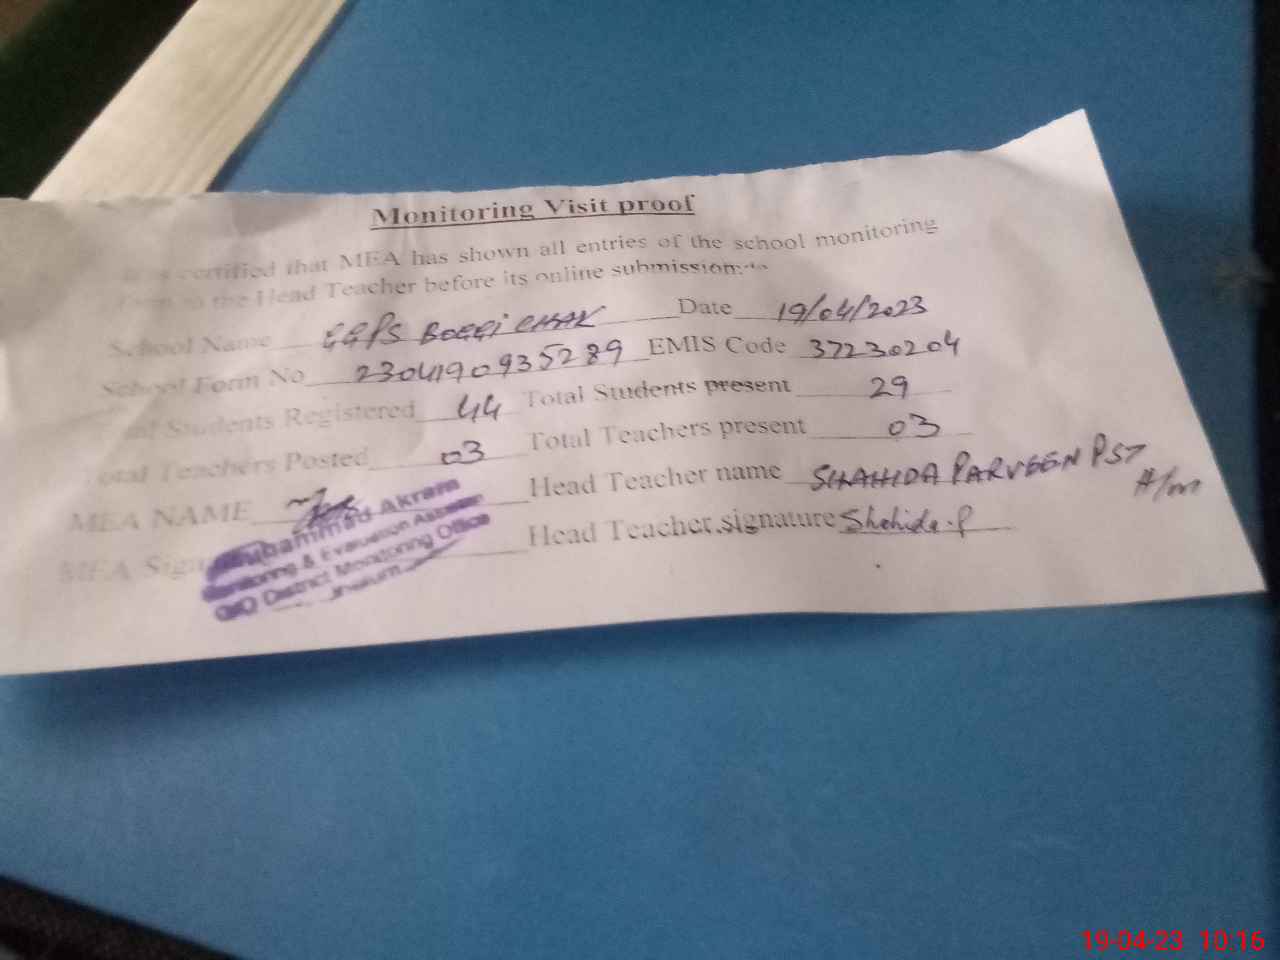 Monitoring Visit proof
certified that MEA has shown all entries of the school monitoring
to the Head Teacher before its online submission.
School Name GGPS BOGGI CHAK Date 19/04/2023
School Form No 2304190935289 EMIS Code 37230204
Students Registered 44 Total Students present 29
Total Teachers Posted 03 Total Teachers present 03
MEA NAME Head Teacher name SHAHIDA PARVEEN PST
H/m
MEA Head Teacher signature Shahida.P
Muhammad Akram
Monitoring & Evaluation Assistant
O/O District Monitoring Office
Jhelum
19-04-23 10:16